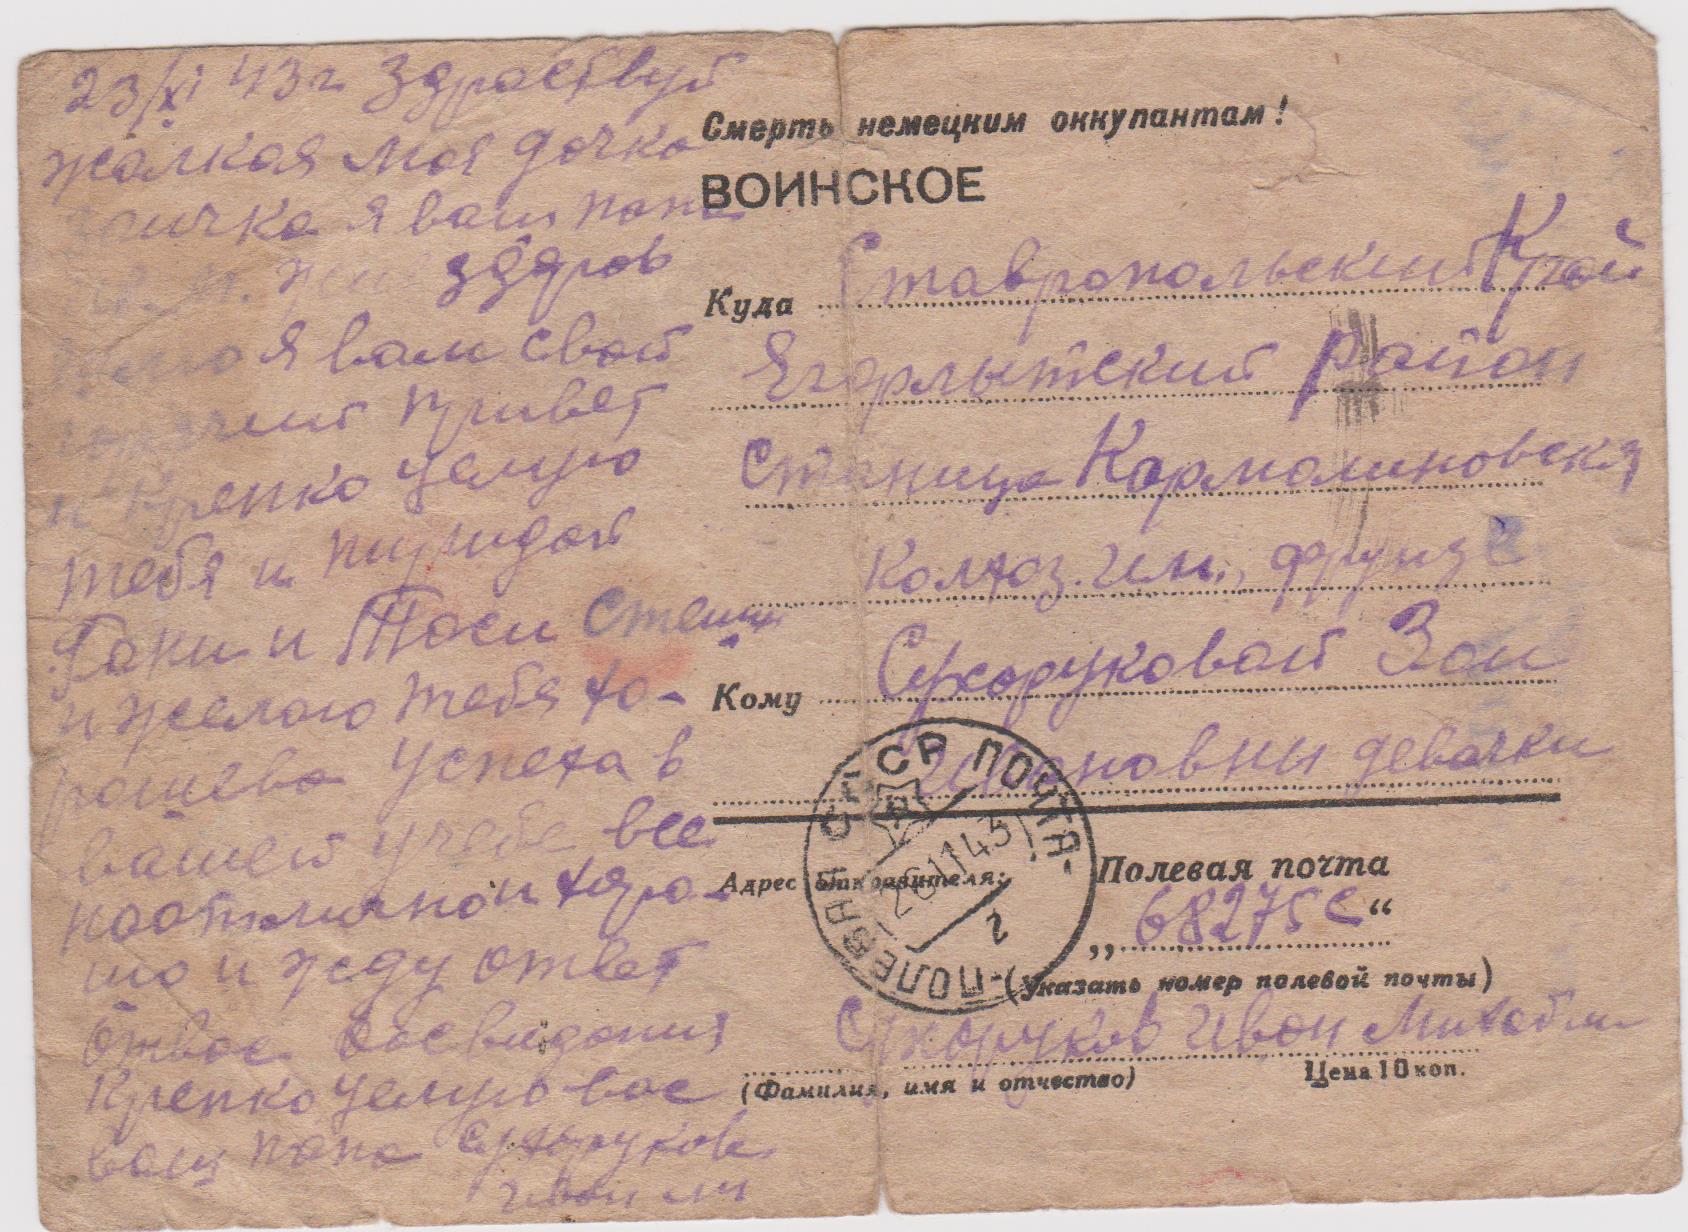 23/XI 43 г Здраствуй
жалкая моя дочка
Заичка я ваш папа
здаров
я вам свой
привет
и Крепко целую
тебя и
Гани и Таси
и желаю тебя хо-
рошева успеха в
вашей учебе все
наотлично и харо-
шо и жду ответ
Отвас Досвидания
Крепко целую вас
ваш папа Сухоруков
Иван Ми
Смерть немецким оккупантам!
ВОИНСКОЕ
Куда Ставропольский Край
Егорлытский район
Станица Кармалиновская
Колхоз. им., фрунзе
Кому Сухоруковай Зои
Ивановны девачки
СССР ПОЧТА - ПОЛЕВАЯ -
26 11 43
2
Адрес отправителя:
Полевая почта
„68275 С“
(Указать номер полевой почты)
Сухоруков Иван Михайли
(Фамилия, имя и отчество)
Цена 10 коп.